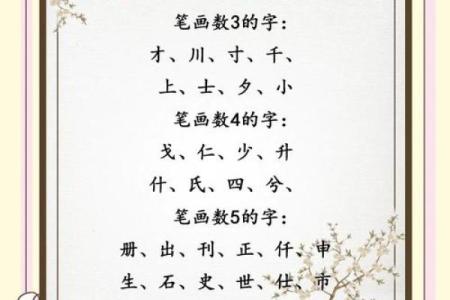 笔画数3的字：
才、川、寸、千、
上、士、夕、小
笔画数4的字：
戈、仁、少、升
什、氏、四、兮、
笔画数5的字：
册、出、刊、正、仟、申
生、石、史、世、仕、市